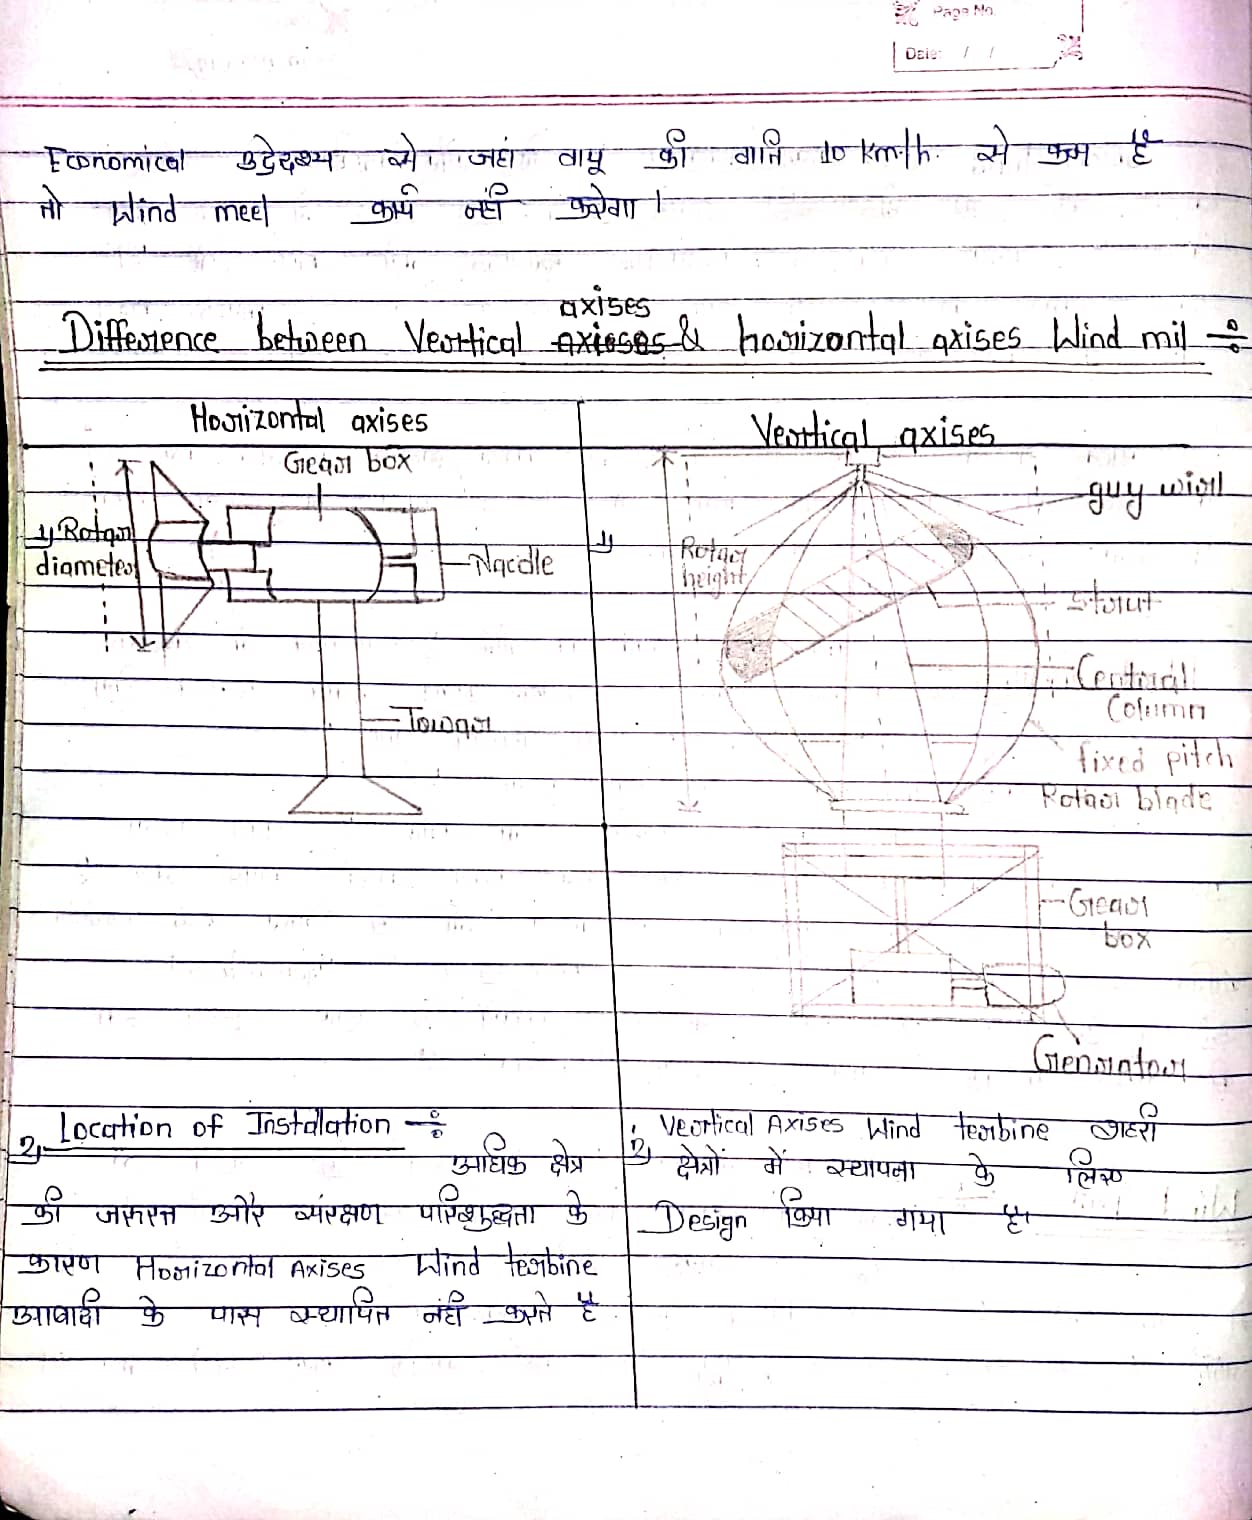 Page No.
Date: / /
Economical उद्देश्य से जहां वायु की गति 10 Km/h. से कम है
तो Wind meel कार्य नहीं करेगा।
axises
Difference between Vertical axieses & horizontal axises Wind mil ÷
Horizontal axises
Vertical axises
Gear box
guy wirl
1) Rotar
diameter
Nacdle
1)
Rotar
height
Strut
Central
Column
Towar
fixed pitch
Rotaor blade
Gear
box
Genrator
2) Location of Instalation ÷
अधिक क्षेत्र
की जरूरत और संरक्षण परिशुद्धता के
कारण Horizontal Axises Wind terbine
आबादी के पास स्थापित नहीं करते है
2) Vertical Axises Wind terbine शहरी
क्षेत्रों में स्थापना के लिए
Design किया गया है।